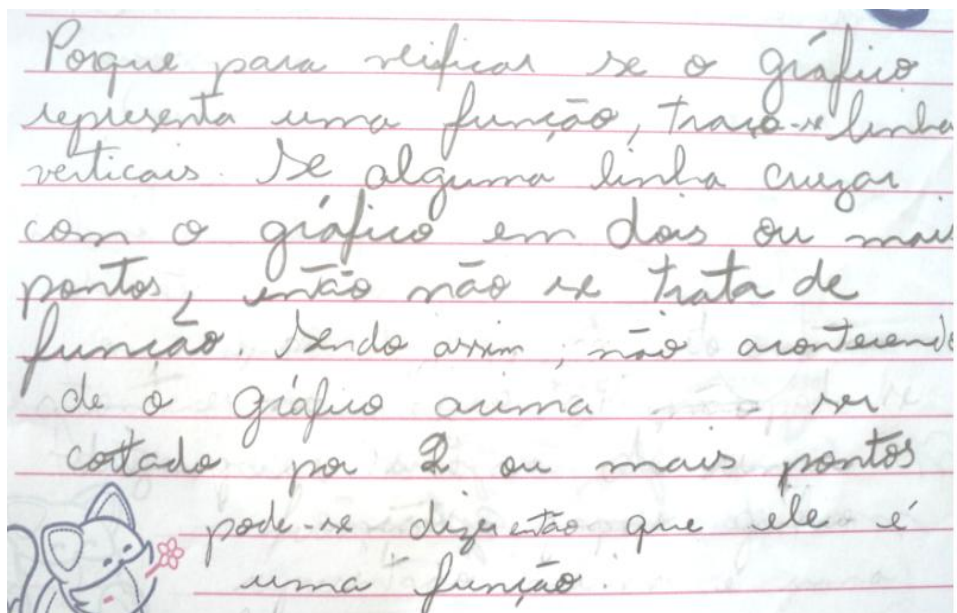 Porque para verificar se o gráfico
representa uma função, traça-se linha
verticais. Se alguma linha cruzar
com o gráfico em dois ou mais
pontos, então não se trata de
função. Sendo assim, não acontecend
de o gráfico acima ser
cortado por 2 ou mais pontos
pode-se dizer então que ele é
uma função.